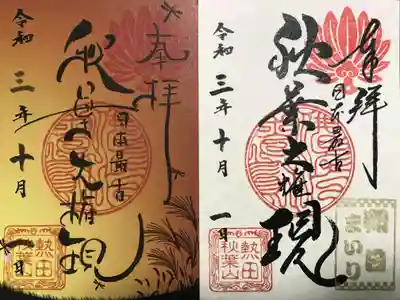 奉拝
日本最古
秋葉大権現
令和三年十月
一日
熱田
秋葉山
奉拝
日本最古
秋葉大権現
令和三年十月
一日
熱田
秋葉山